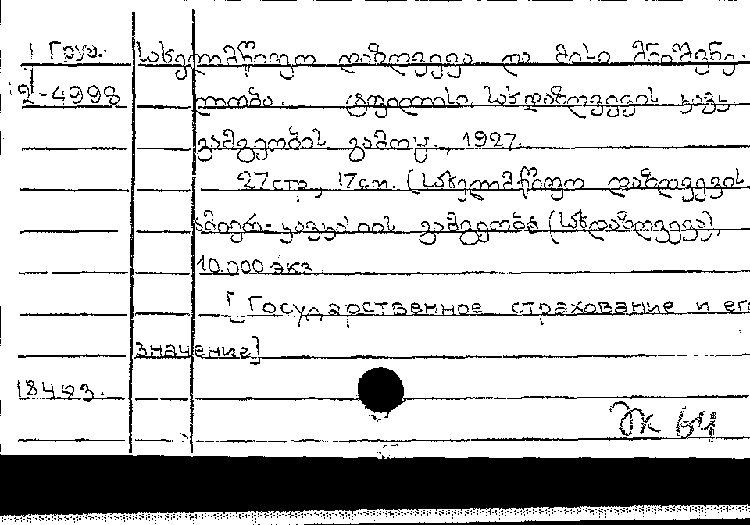 Груз. სახელმწიფო დაზღვევა და მისი მნიშვნე-
2-4998 ლობა. ტფილისი, სახდაზღვევის კავკ.
გამგეობის გამოც., 1927.
27 стр., 17 см. (სახელმწიფო დაზღვევის
ამიერ-კავკასიის გამგეობა (სახდაზღვევა),
10.000 экз.
[Государственное страхование и его
значение]
Жк 64